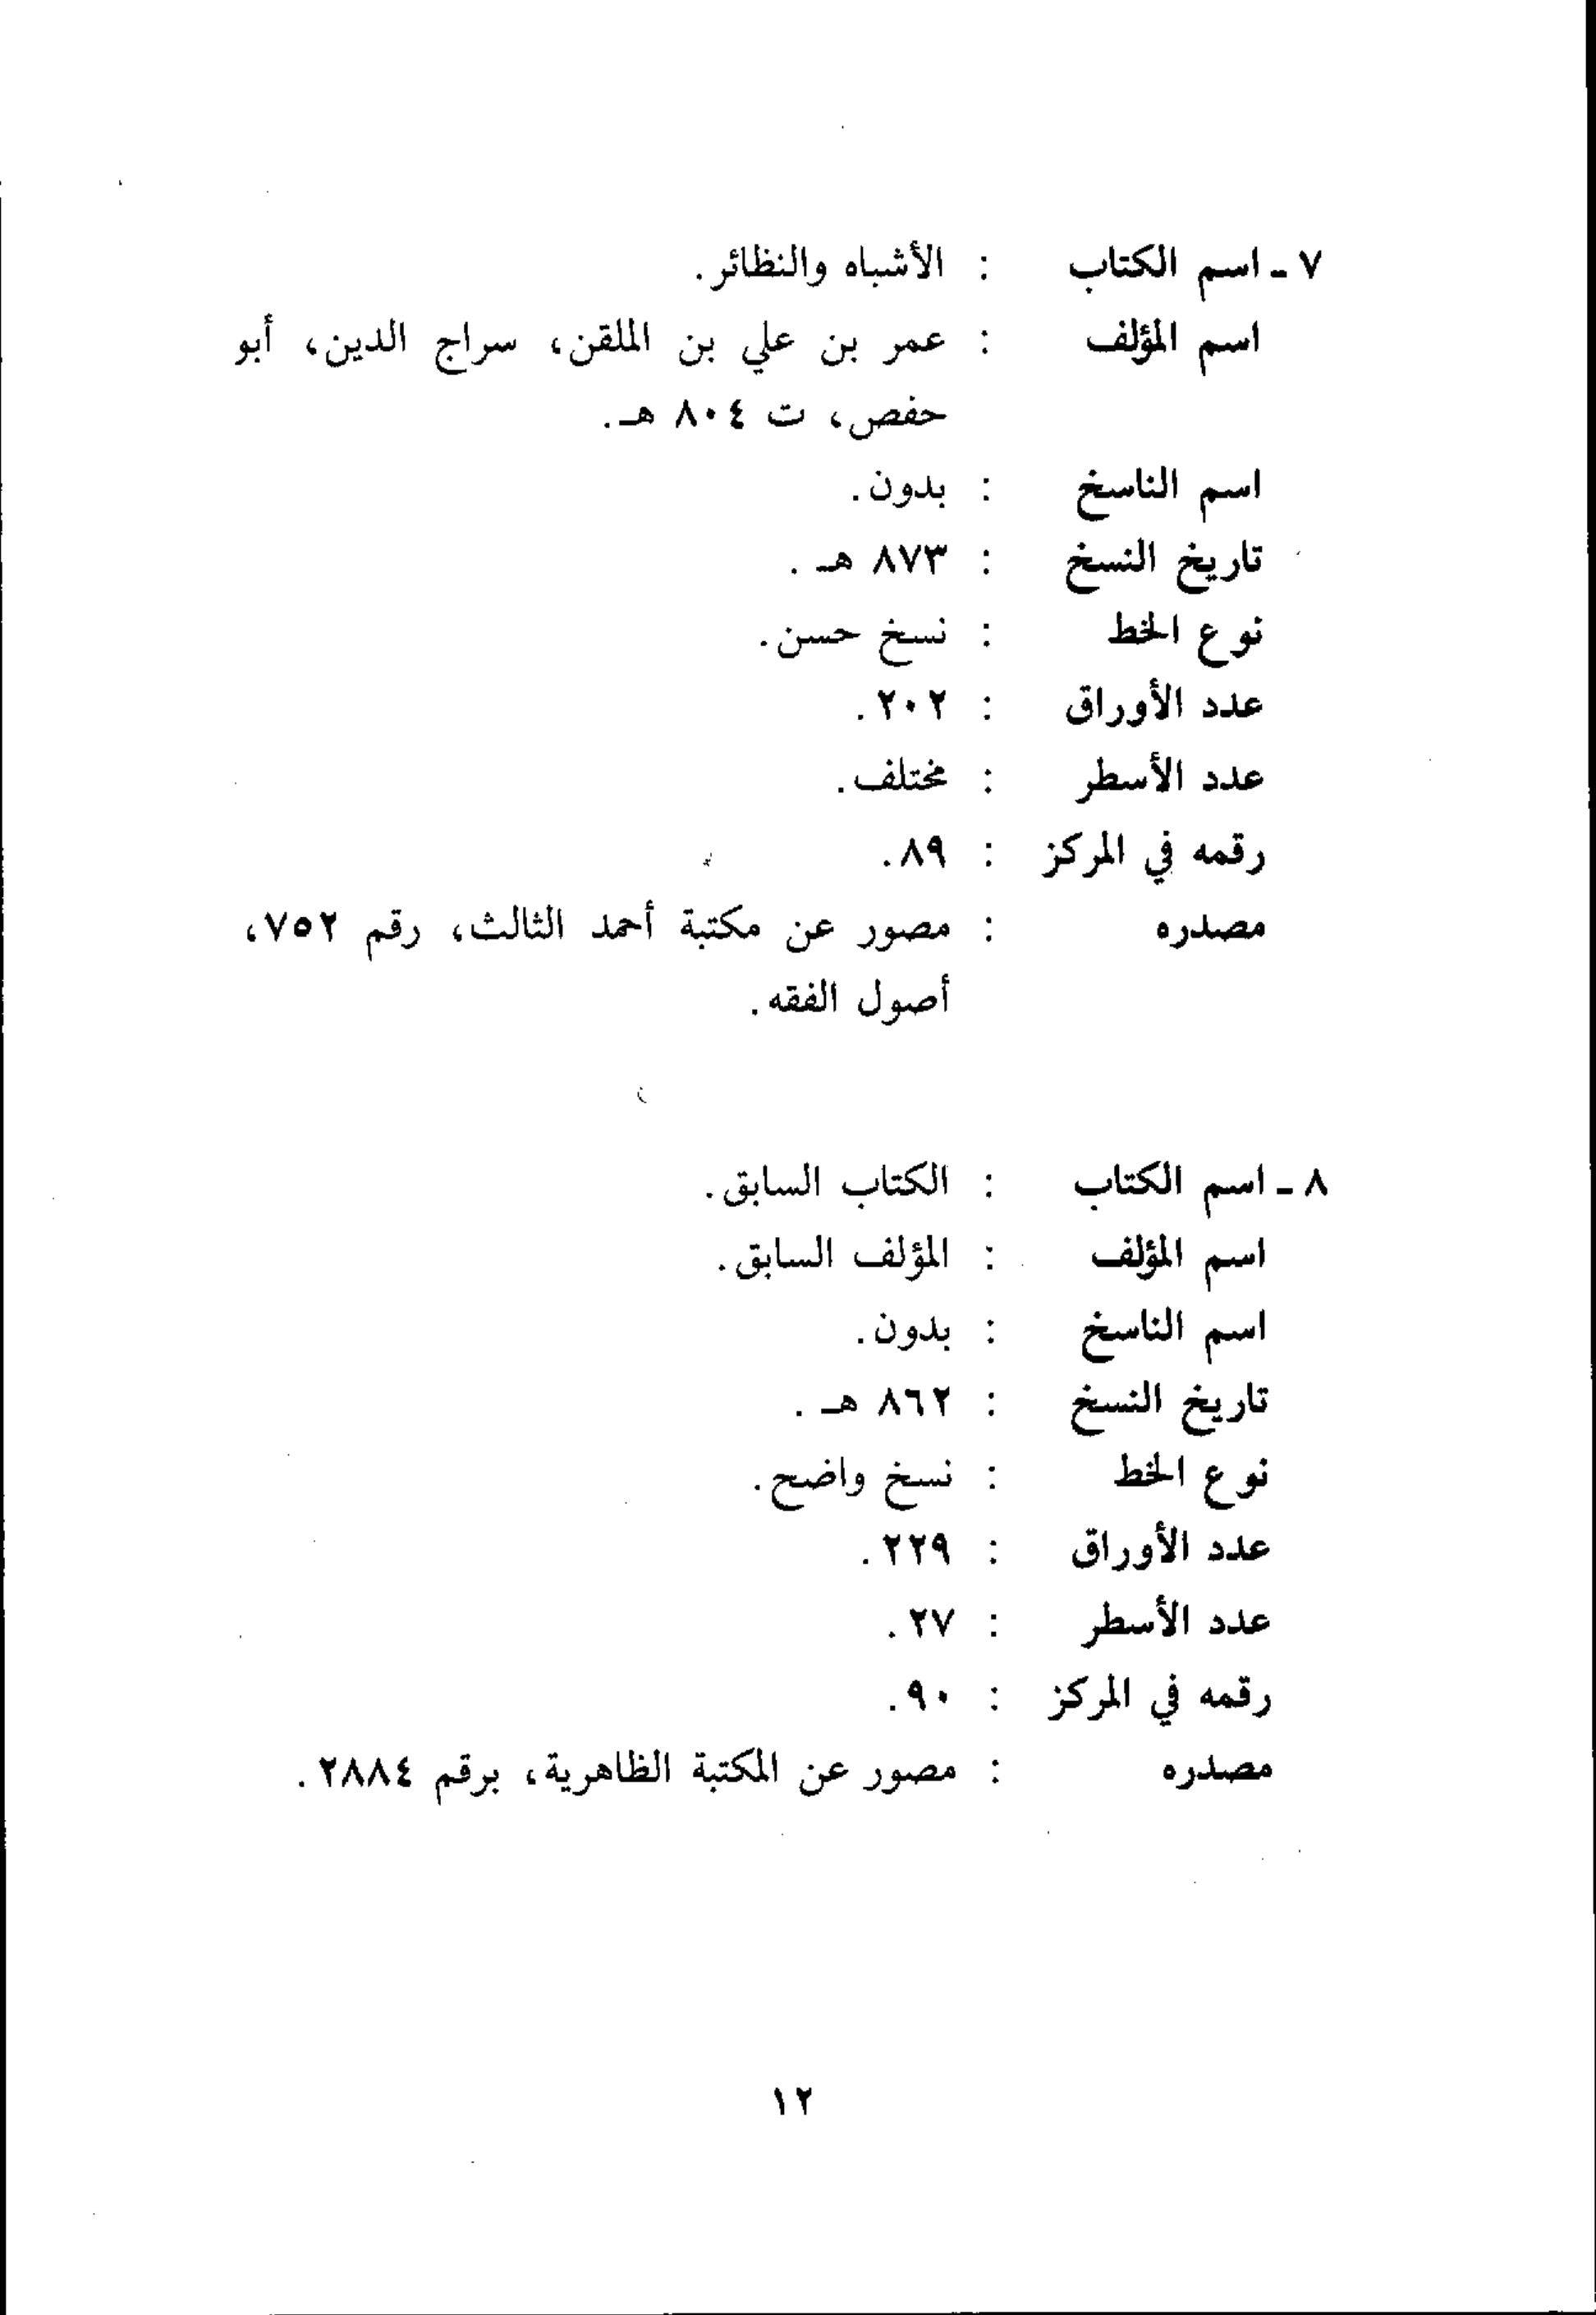 ٧ - اسم الكتاب : الأشباه والنظائر.
اسم المؤلف : عمر بن علي بن الملقن، سراج الدين، أبو
حفص، ت ٨٠٤ هـ.
اسم الناسخ : بدون.
تاريخ النسخ : ٨٧٣ هـ .
نوع الخط : نسخ حسن.
عدد الأوراق : ٢٠٢.
عدد الأسطر : مختلف.
رقمه في المركز : ٨٩.
مصدره : مصور عن مكتبة أحمد الثالث، رقم ٧٥٢،
أصول الفقه.
٨ - اسم الكتاب : الكتاب السابق.
اسم المؤلف : المؤلف السابق.
اسم الناسخ : بدون.
تاريخ النسخ : ٨٦٢ هـ .
نوع الخط : نسخ واضح.
عدد الأوراق : ٢٢٩.
عدد الأسطر : ٢٧.
رقمه في المركز : ٩٠.
مصدره : مصور عن المكتبة الظاهرية، برقم ٢٨٨٤.
١٢